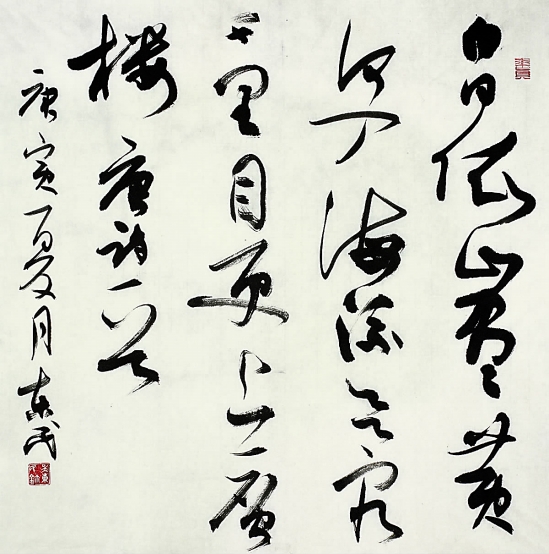 白日依山尽黄
河入海流欲穷
千里目更上一层
楼 唐诗一首
庚寅夏月 东民